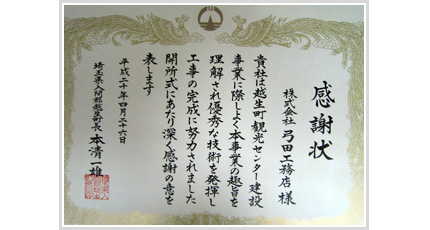 感謝状
株式会社 弓田工務店 様
貴社は越生町観光センター建設
事業に際しよく本事業の趣旨を
理解され優秀な技術を発揮し
工事の完成に努力されました
開所式にあたり深く感謝の意を
表します
平成二十年四月二十六日
埼玉県入間郡越生町長 本清一雄